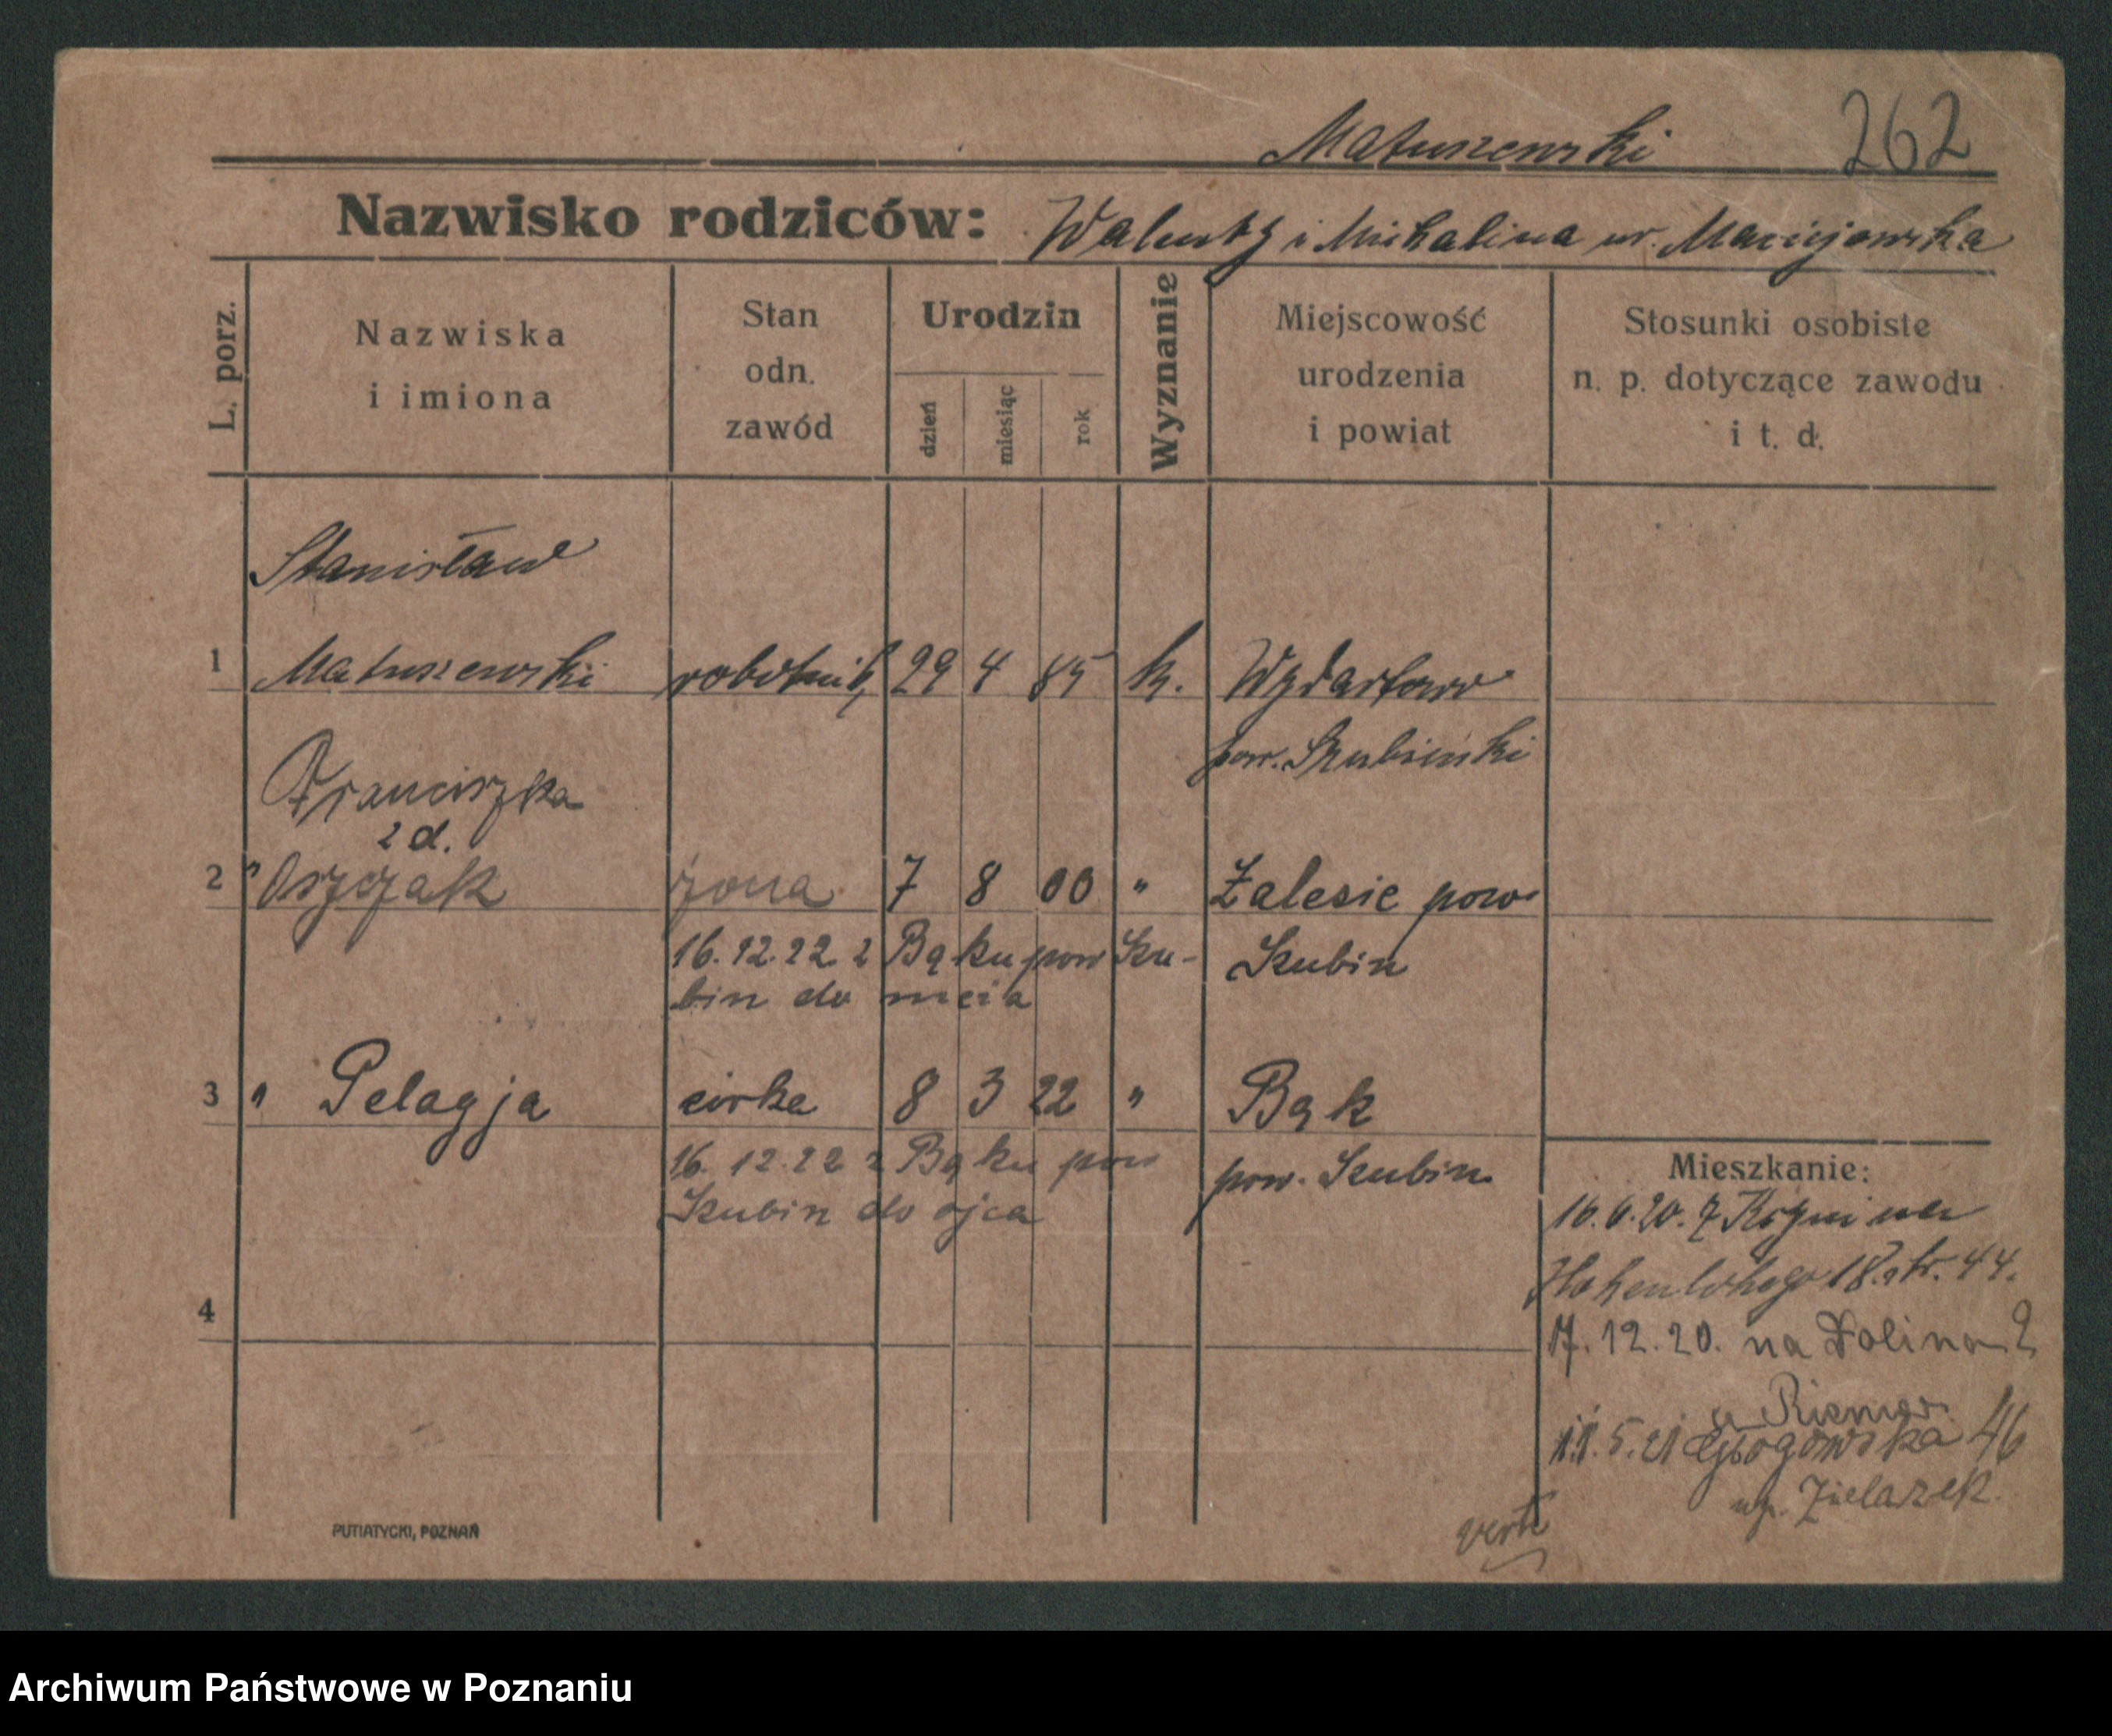 Matuszewski 262
Nazwisko rodziców: Walenty i Michalina ur. Maciejewska
L. porz.
Nazwiska
i imiona
Stan
odn.
zawód
Urodzin
dzień
miesiąc
rok
Wyznanie
Miejscowość
urodzenia
i powiat
Stosunki osobiste
n. p. dotyczące zawodu
i t. d.
Stanisław
1 Matuszewski robotnik 29 4 85 k. Wydartowo
pow. Szubiński
Franciszka
z d.
2 " Oszczak żona 7 8 00 " Zalesie pow.
16.12.22 z Bąku pow Szu- Szubin
bin do męża
3 " Pelagja córka 8 3 22 " Bąk
16.12.22 z Bąku pow pow. Szubin
Szubin do ojca
4
Mieszkanie:
16.6.20. z na
Hohenlohego 18. str. 44.
17.12.20. na Dolina 2
u Riemer
11.5.21 Głogowska 46
up. Zielazek.
verte
PUTIATYCKI, POZNAŃ
Archiwum Państwowe w Poznaniu